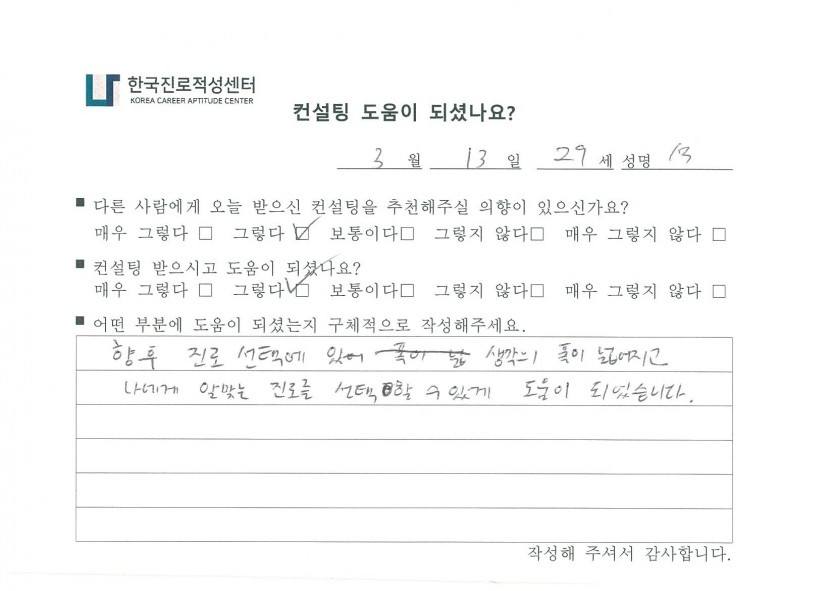 한국진로적성센터
KOREA CAREER APTITUDE CENTER
컨설팅 도움이 되셨나요?
3 월 13 일 29 세 성명
■ 다른 사람에게 오늘 받으신 컨설팅을 추천해주실 의향이 있으신가요?
매우 그렇다 □ 그렇다 ☑ 보통이다□ 그렇지 않다□ 매우 그렇지 않다 □
■ 컨설팅 받으시고 도움이 되셨나요?
매우 그렇다 □ 그렇다 ☑ 보통이다□ 그렇지 않다□ 매우 그렇지 않다 □
■ 어떤 부분에 도움이 되셨는지 구체적으로 작성해주세요.
향후 진로 선택에 있어 폭이 넓 생각의 폭이 넓어지고
나에게 알맞는 진로를 선택할 수 있게 도움이 되었습니다.
작성해 주셔서 감사합니다.